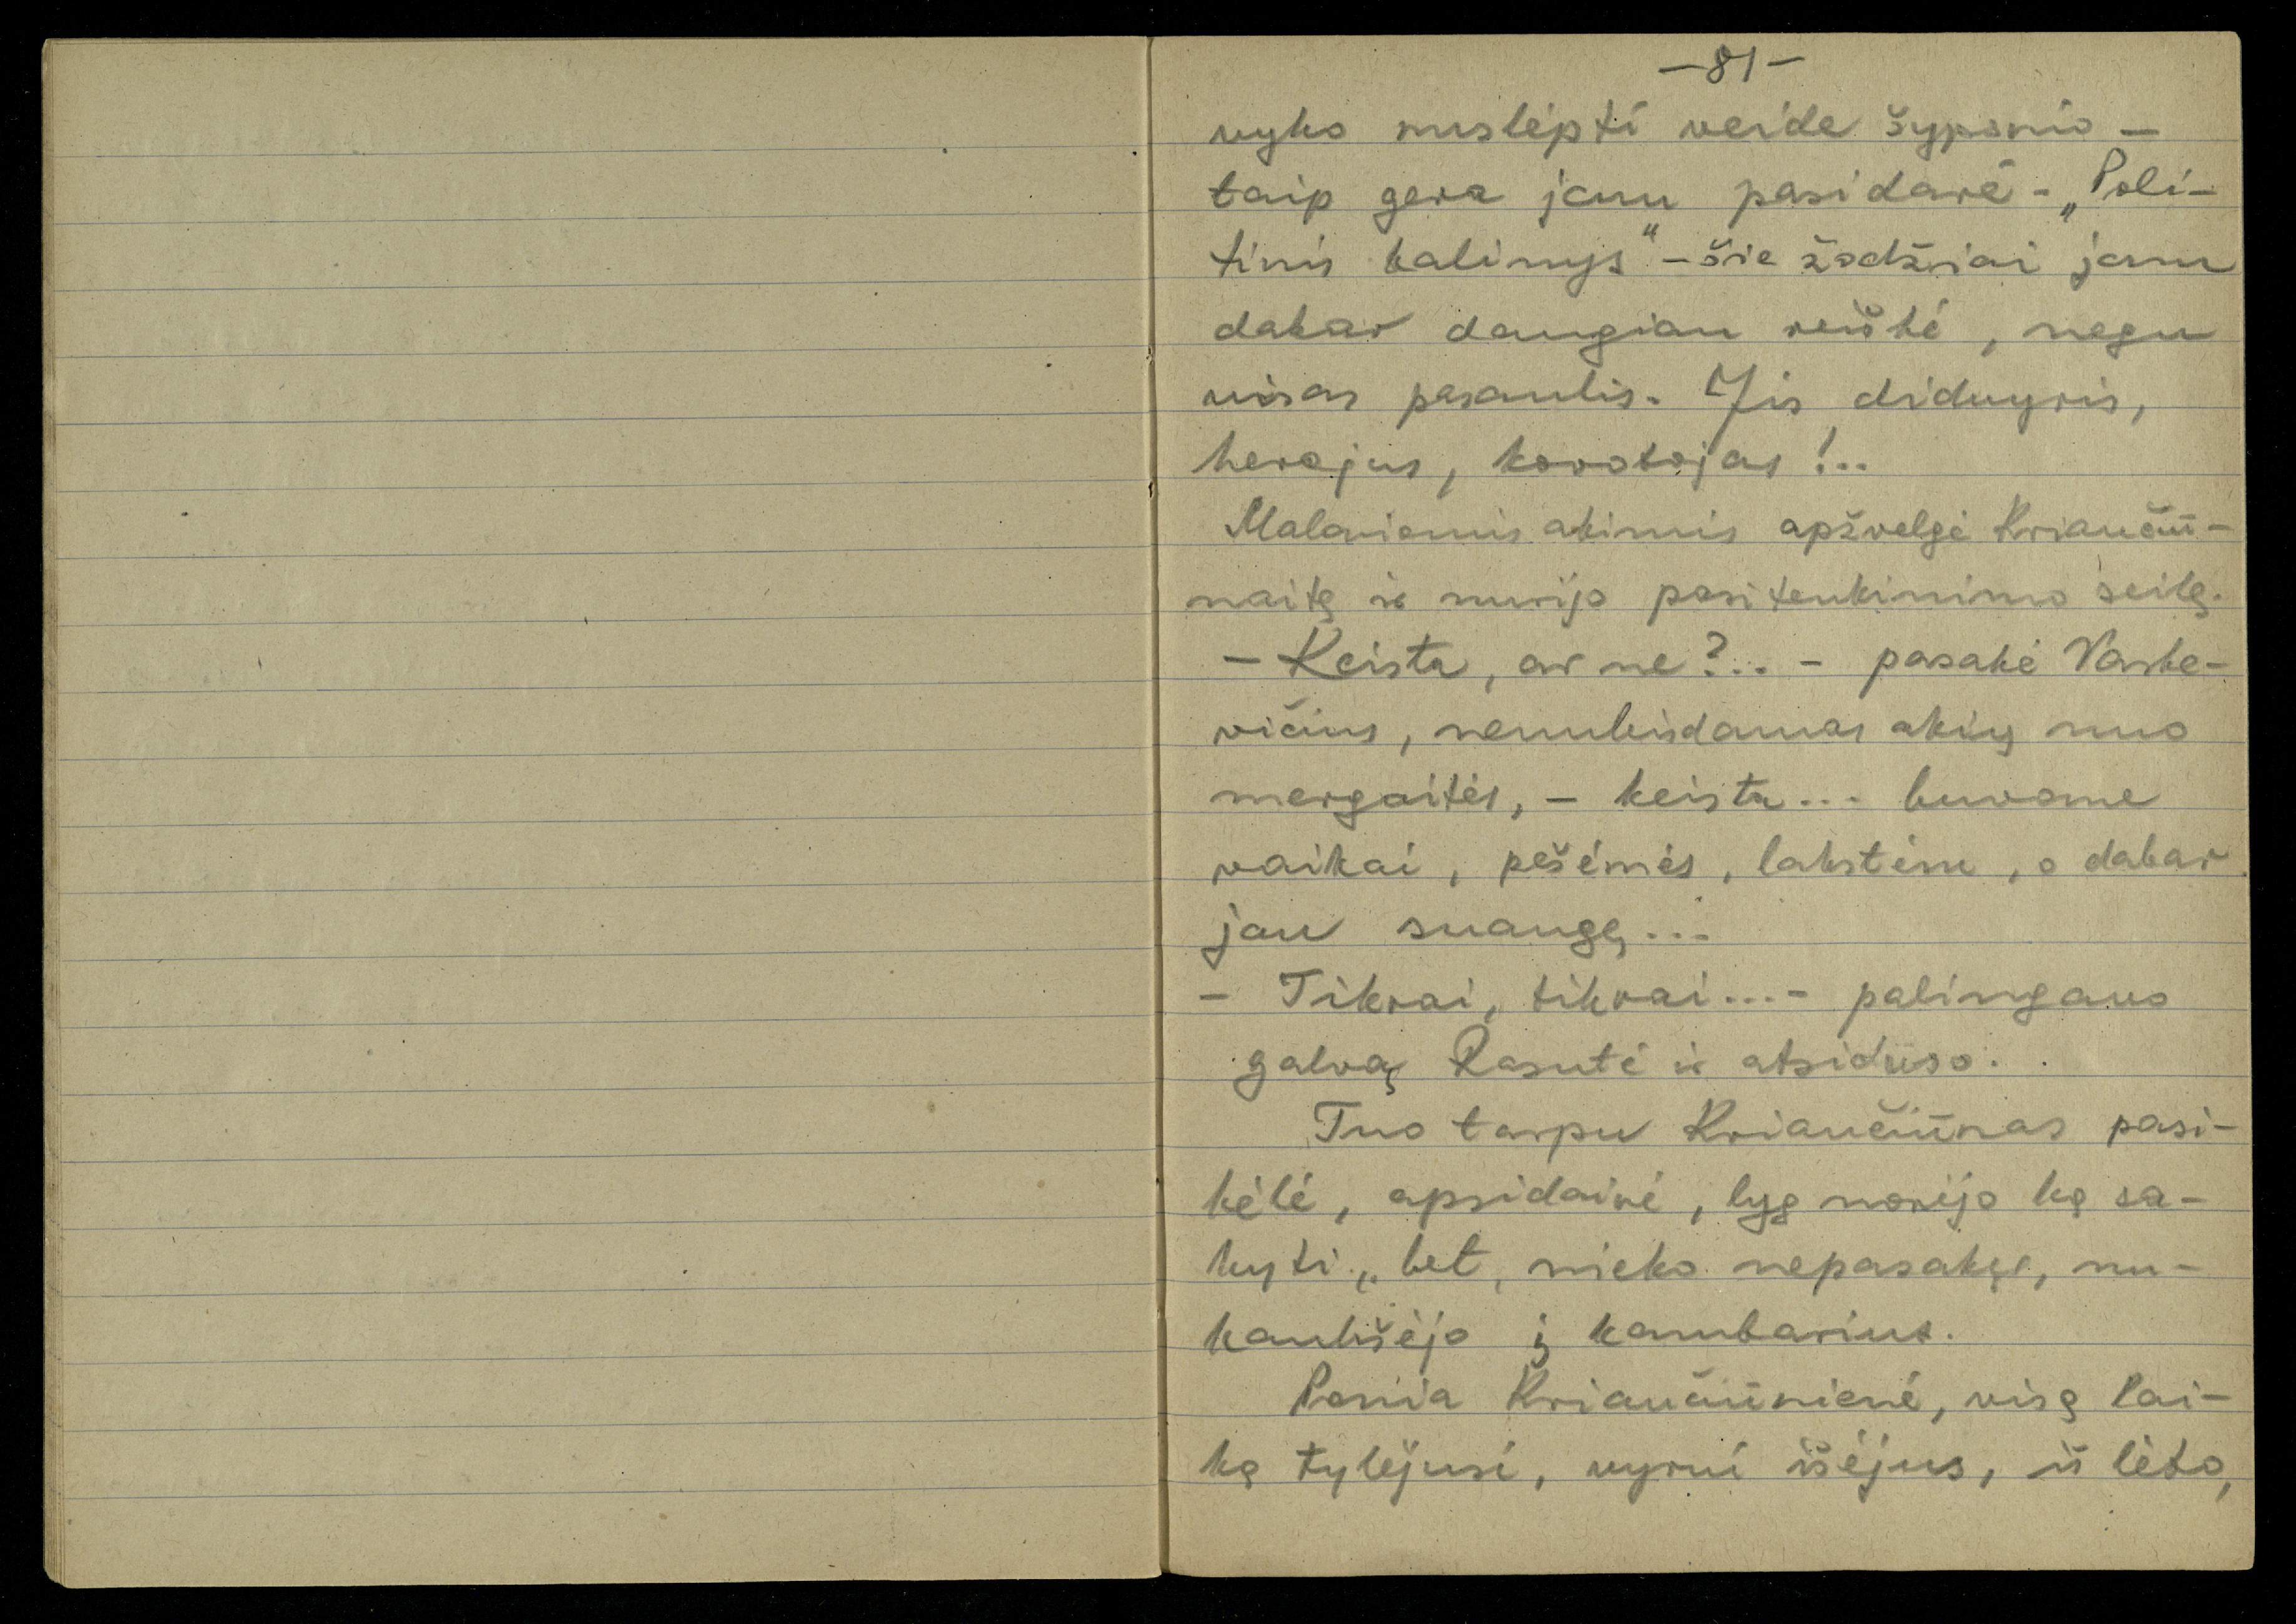 —81—
vyko nuslėpti veide šypsnio —
taip gera jam pasidarė - „Poli-
tinis kalinys“ - šie žodžiai jam
dabar daugiau reiškė, negu
visas pasaulis. Jis didvyris,
herojus, kovotojas!..
Maloniomis akimis apžvelgė Kriaučiū-
naitę ir nurijo pasitenkinimo seilę.
- Keista, ar ne?.. - pasakė Vaske-
vičius, nenuleisdamas akių nuo
mergaitės, - keista... buvome
vaikai, pešėmės, lakstėm, o dabar
jau suaugę...
- Tikrai, tikrai... - palingavo
galvą Rasutė ir atsidūso.
Tuo tarpu Kriaučiūnas pasi-
kėlė, apsidairė, lyg norėjo ką sa-
kyti, bet, nieko nepasakęs, nu-
kaukšėjo į kambarius.
Ponia Kriaučiūnienė, visą lai-
ką tylėjusi, vyrui išėjus, iš lėto,